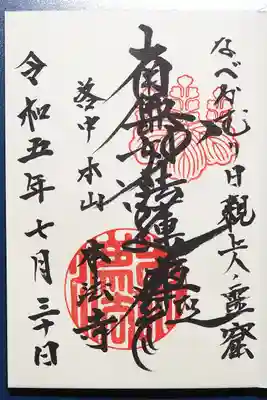 なべかむり日親上人ノ霊窟
南無妙法蓮華経
洛中 本山 本法寺
令和五年七月三十日